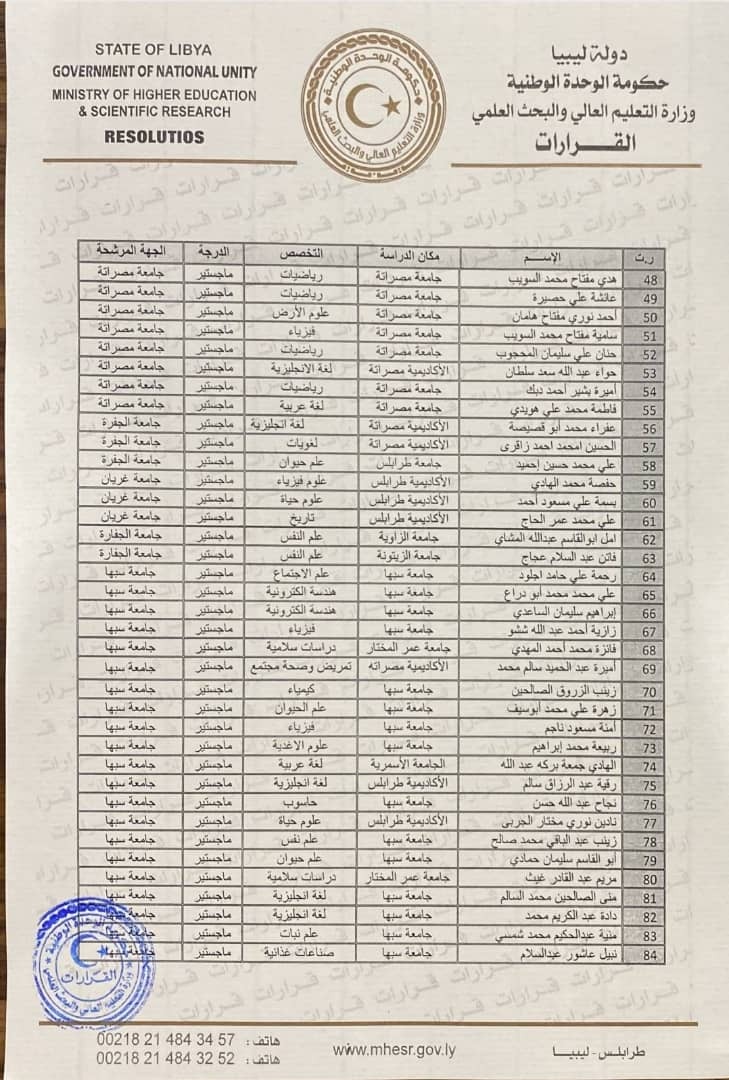 STATE OF LIBYA
GOVERNMENT OF NATIONAL UNITY
MINISTRY OF HIGHER EDUCATION
& SCIENTIFIC RESEARCH
RESOLUTIOS
دولة ليبيا
حكومة الوحدة الوطنية
وزارة التعليم العالي والبحث العلمي
القـــرارات
حكومة الوحدة الوطنية
وزارة التعليم العالي والبحث العلمي
ر.ت الإســـم مكان الدراسة التخصص الدرجة الجهة المرشحة
48 هدي مفتاح محمد السويب جامعة مصراتة رياضيات ماجستير جامعة مصراتة
49 عائشة علي حصيرة جامعة مصراتة رياضيات ماجستير جامعة مصراتة
50 أحمد نوري مفتاح هامان جامعة مصراتة علوم الأرض ماجستير جامعة مصراتة
51 سامية مفتاح محمد السويب جامعة مصراتة فيزياء ماجستير جامعة مصراتة
52 حنان علي سليمان المحجوب جامعة مصراتة رياضيات ماجستير جامعة مصراتة
53 حواء عبد الله سعد سلطان الأكاديمية مصراتة لغة الانجليزية ماجستير جامعة مصراتة
54 أميرة بشير أحمد دبك جامعة مصراتة رياضيات ماجستير جامعة مصراتة
55 فاطمة محمد علي هويدي جامعة مصراتة لغة عربية ماجستير جامعة مصراتة
56 عفراء محمد أبو قصيصة الأكاديمية مصراتة لغة انجليزية ماجستير جامعة الجفرة
57 الحسين امحمد احمد زاقرى الأكاديمية مصراتة لغويات ماجستير جامعة الجفرة
58 علي محمد حسين إحميد جامعة طرابلس علم حيوان ماجستير جامعة الجفرة
59 حفصة محمد الهادي الأكاديمية طرابلس علوم فيزياء ماجستير جامعة غريان
60 بسمة علي مسعود أحمد الأكاديمية طرابلس علوم حياة ماجستير جامعة غريان
61 علي محمد عمر الحاج الأكاديمية طرابلس تاريخ ماجستير جامعة غريان
62 امل ابوالقاسم عبدالله المشاي جامعة الزاوية علم النفس ماجستير جامعة الجفارة
63 فاتن عبد السلام عجاج جامعة الزيتونة علم النفس ماجستير جامعة الجفارة
64 رحمة علي حامد اجلود جامعة سبها علم الاجتماع ماجستير جامعة سبها
65 علي محمد محمد أبو دراع جامعة سبها هندسة الكترونية ماجستير جامعة سبها
66 إبراهيم سليمان الساعدي جامعة سبها هندسة الكترونية ماجستير جامعة سبها
67 زازية أحمد عبد الله ششو جامعة سبها فيزياء ماجستير جامعة سبها
68 فائزة محمد أحمد المهدي جامعة عمر المختار دراسات سلامية ماجستير جامعة سبها
69 أميرة عبد الحميد سالم محمد الأكاديمية مصراته تمريض وصحة مجتمع ماجستير جامعة سبها
70 زينب الزروق الصالحين جامعة سبها كيمياء ماجستير جامعة سبها
71 زهرة علي محمد أبوسيف جامعة سبها علم الحيوان ماجستير جامعة سبها
72 أمنة مسعود ناجم جامعة سبها فيزياء ماجستير جامعة سبها
73 ربيعة محمد إبراهيم جامعة سبها علوم الاغدية ماجستير جامعة سبها
74 الهادي جمعة بركه عبد الله الجامعة الأسمرية لغة عربية ماجستير جامعة سبها
75 رقية عبد الرزاق سالم الأكاديمية طرابلس لغة انجليزية ماجستير جامعة سبها
76 نجاح عبد الله حسن جامعة سبها حاسوب ماجستير جامعة سبها
77 نادين نوري مختار الجربي الأكاديمية طرابلس علوم حياة ماجستير جامعة سبها
78 زينب عبد الباقي محمد صالح جامعة سبها علم نفس ماجستير جامعة سبها
79 أبو القاسم سليمان حمادي جامعة سبها علم حيوان ماجستير جامعة سبها
80 مريم عبد القادر غيث جامعة عمر المختار دراسات سلامية ماجستير جامعة سبها
81 منى الصالحين محمد السالم جامعة سبها لغة انجليزية ماجستير جامعة سبها
82 دادة عبد الكريم محمد جامعة سبها لغة انجليزية ماجستير جامعة سبها
83 منية عبدالحكيم محمد شمسي جامعة سبها علم نبات ماجستير جامعة سبها
84 نبيل عاشور عبدالسلام جامعة سبها صناعات غذائية ماجستير جامعة سبها
القرارات
هاتف : 00218 21 484 34 57
هاتف : 00218 21 484 32 52
www.mhesr.gov.ly
طرابلس - ليبيـــا